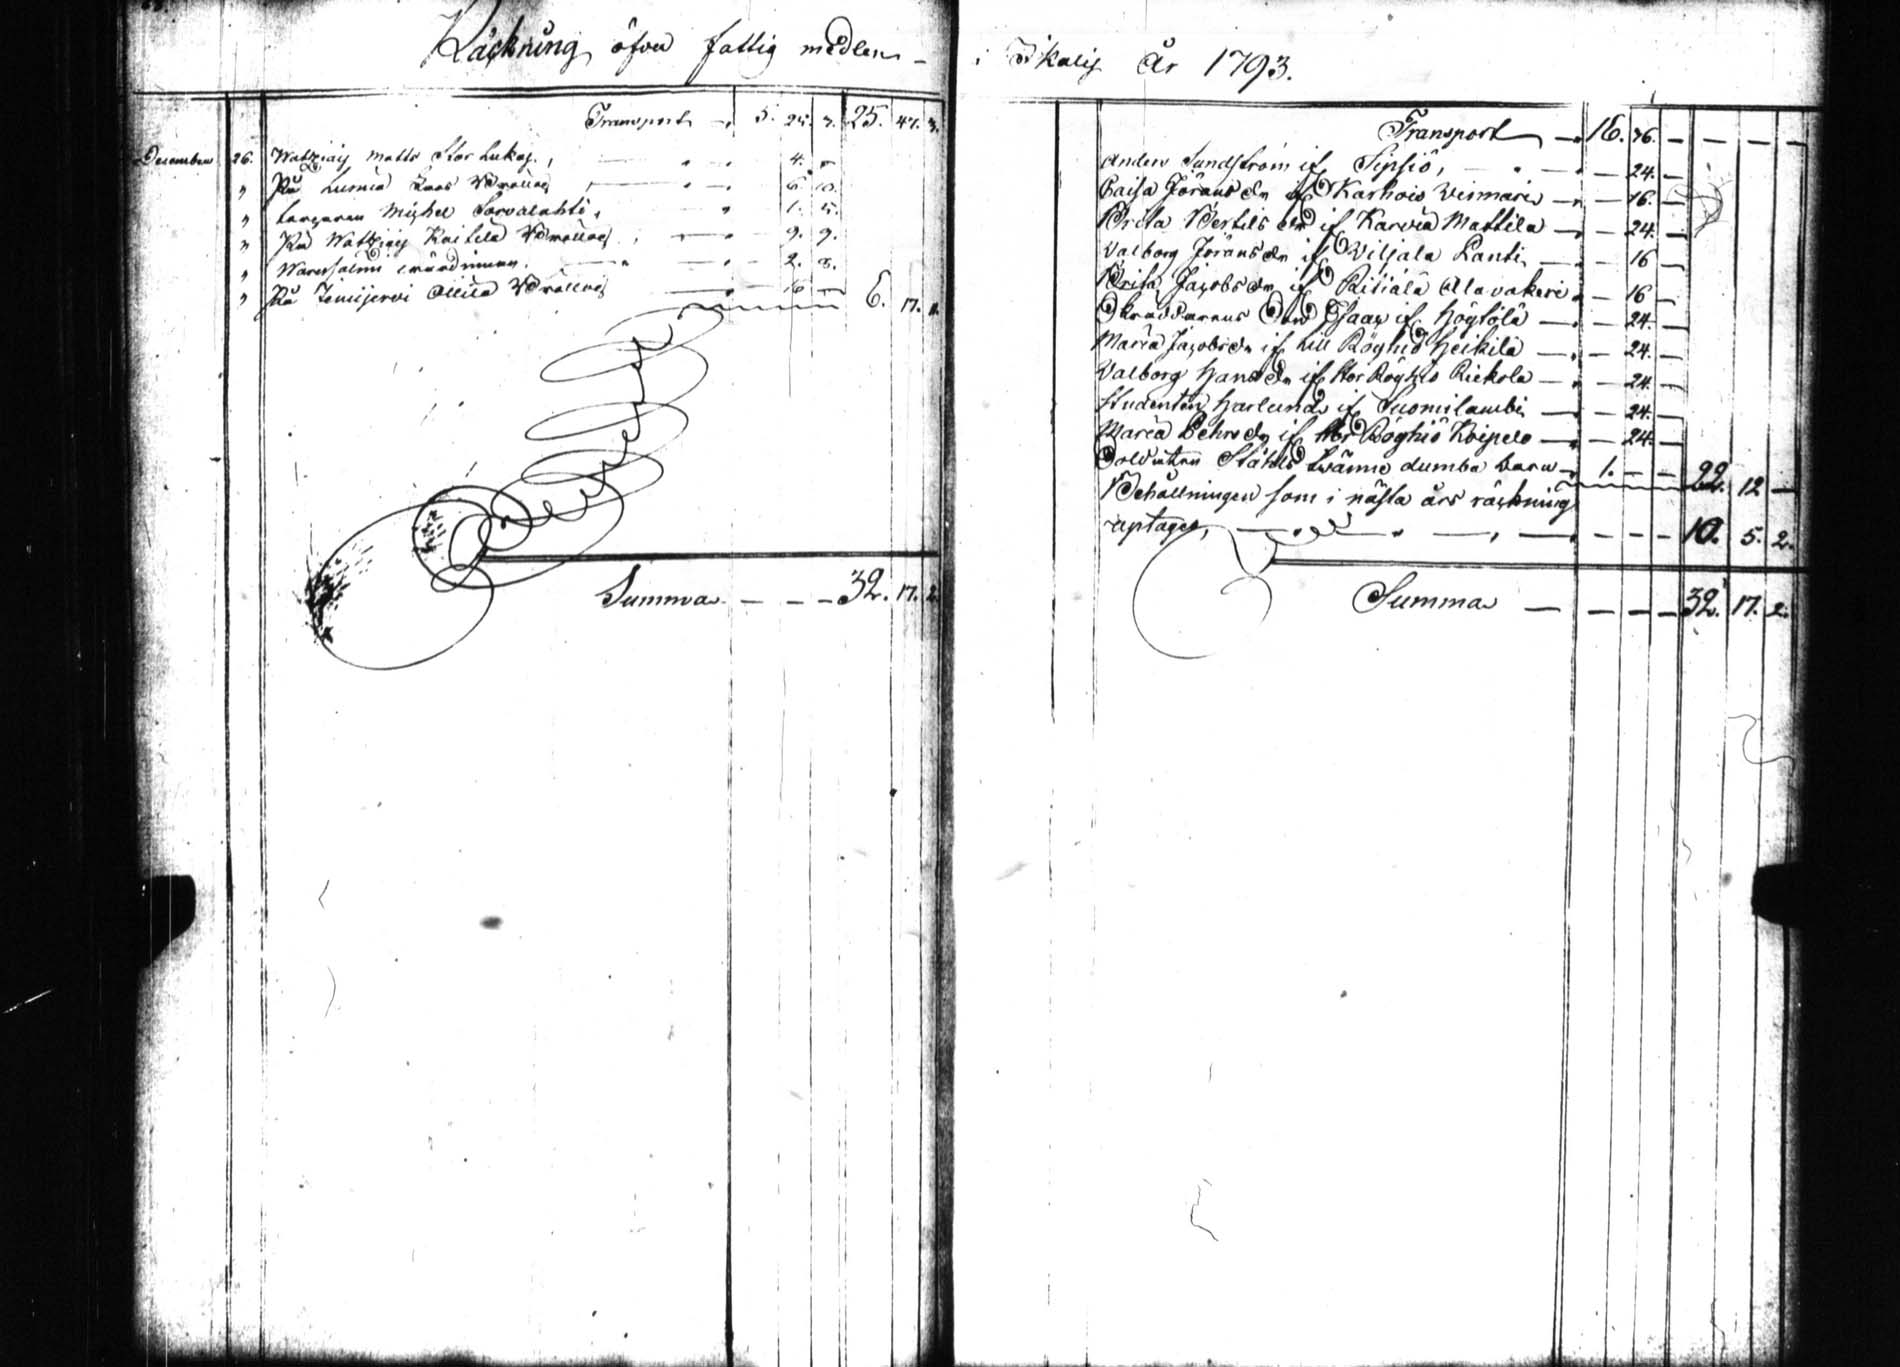 Räckning öfver fattig medlen
Transport 5. 25. 7. 25. 47. 3.
December 26. Watzjaij Matts Stor Lukaj, 4.
" På Lumia Lars Bröllop
" Michel Sorvalahti, 1. 5.
" På Watzjaij Kaitila Bröllop, 9. 9.
" 2. 8.
" På Jämijervi Ollila Bröllop 6. 17.
Summa 32. 17. 2.
i Ikalis År 1793.
Transport 16. 36.
Anders Sandström if Sipsiö, 24.
Caisa Jörans dr if Karhois Veimari 16.
Brita Bertils dr if Karvia Mattila 24.
Valborg Jörans dr if Viljala Panti 16
Brita Jacobs dr if Riitiala Alavakeri 16
Skräddarens Isaac if Högtölä 24.
Maria Jacobs dr if Lill Röyhiö Heikilä 24.
Valborg Hans dr if Stor Röyhiö Riekola 24.
Studenten Harlund if Suomilambi 24.
Maria if Stor Röyhiö Koipelo 24.
Soldaten Ståhls tvänne dumba barn 1. 22. 12
Behållningen som i nästa års räckning
uptages, 10. 5. 2.
Summa 32. 17. 2.